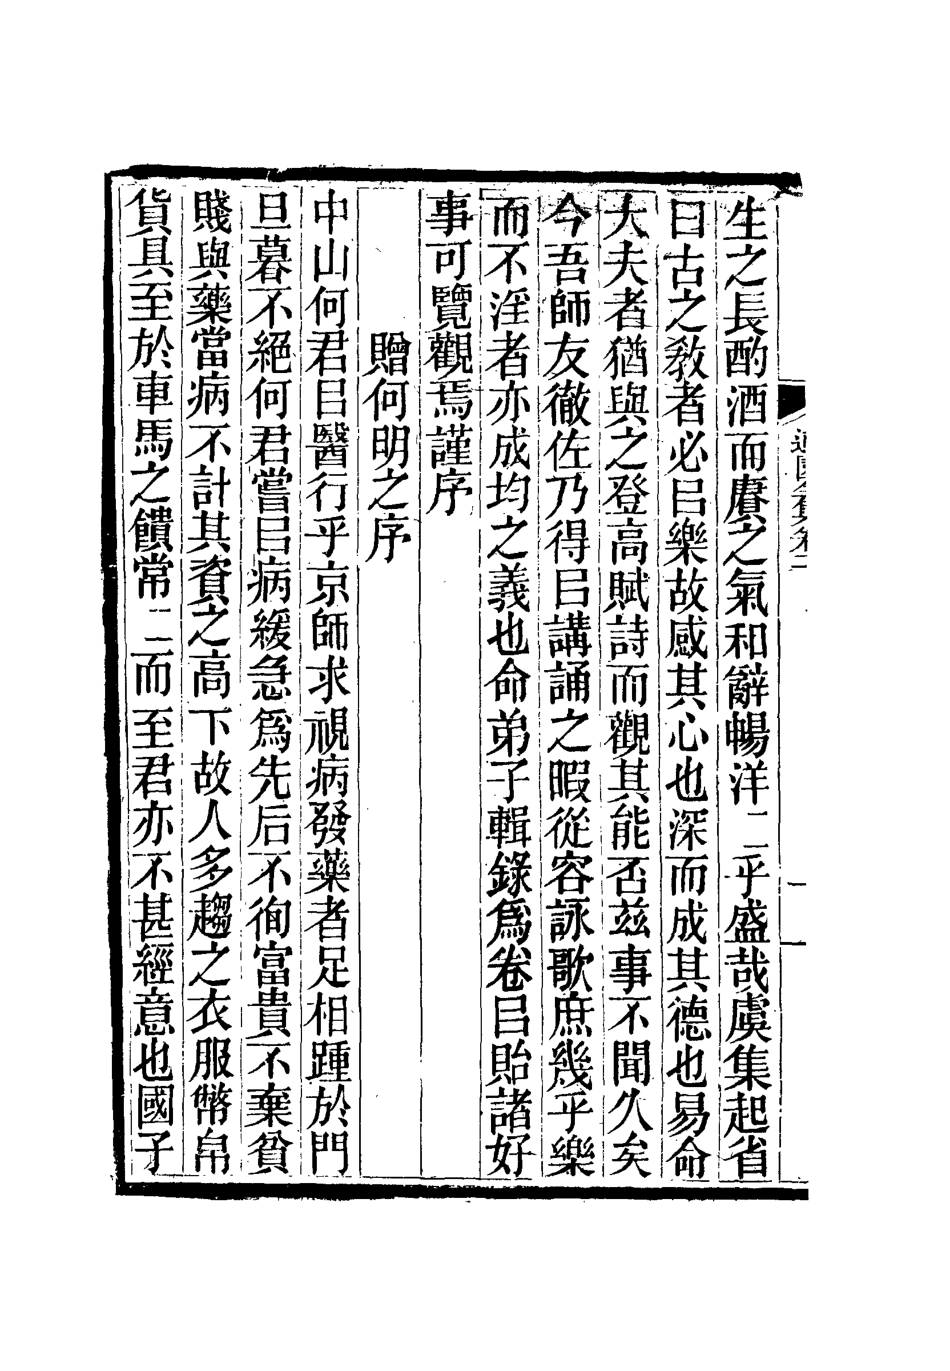 生之長酌酒而賡之氣和辭暢洋〻乎盛哉虞集起省
曰古之敎者必㠯樂故感其心也深而成其德也易命
大夫者猶與之登高賦詩而觀其能否兹事不聞久矣
今吾師友徹佐乃得㠯講誦之暇從容詠歌庶幾乎樂
而不淫者亦成均之義也命弟子輯錄爲卷㠯貽諸好
事可覽觀焉謹序
贈何明之序
中山何君㠯醫行乎京師求視病發藥者足相踵於門
旦暮不絕何君嘗㠯病緩急爲先后不徇富貴不棄貧
賤與藥當病不計其資之高下故人多趨之衣服幣帛
貨具至於車馬之饋常〻而至君亦不甚經意也國子